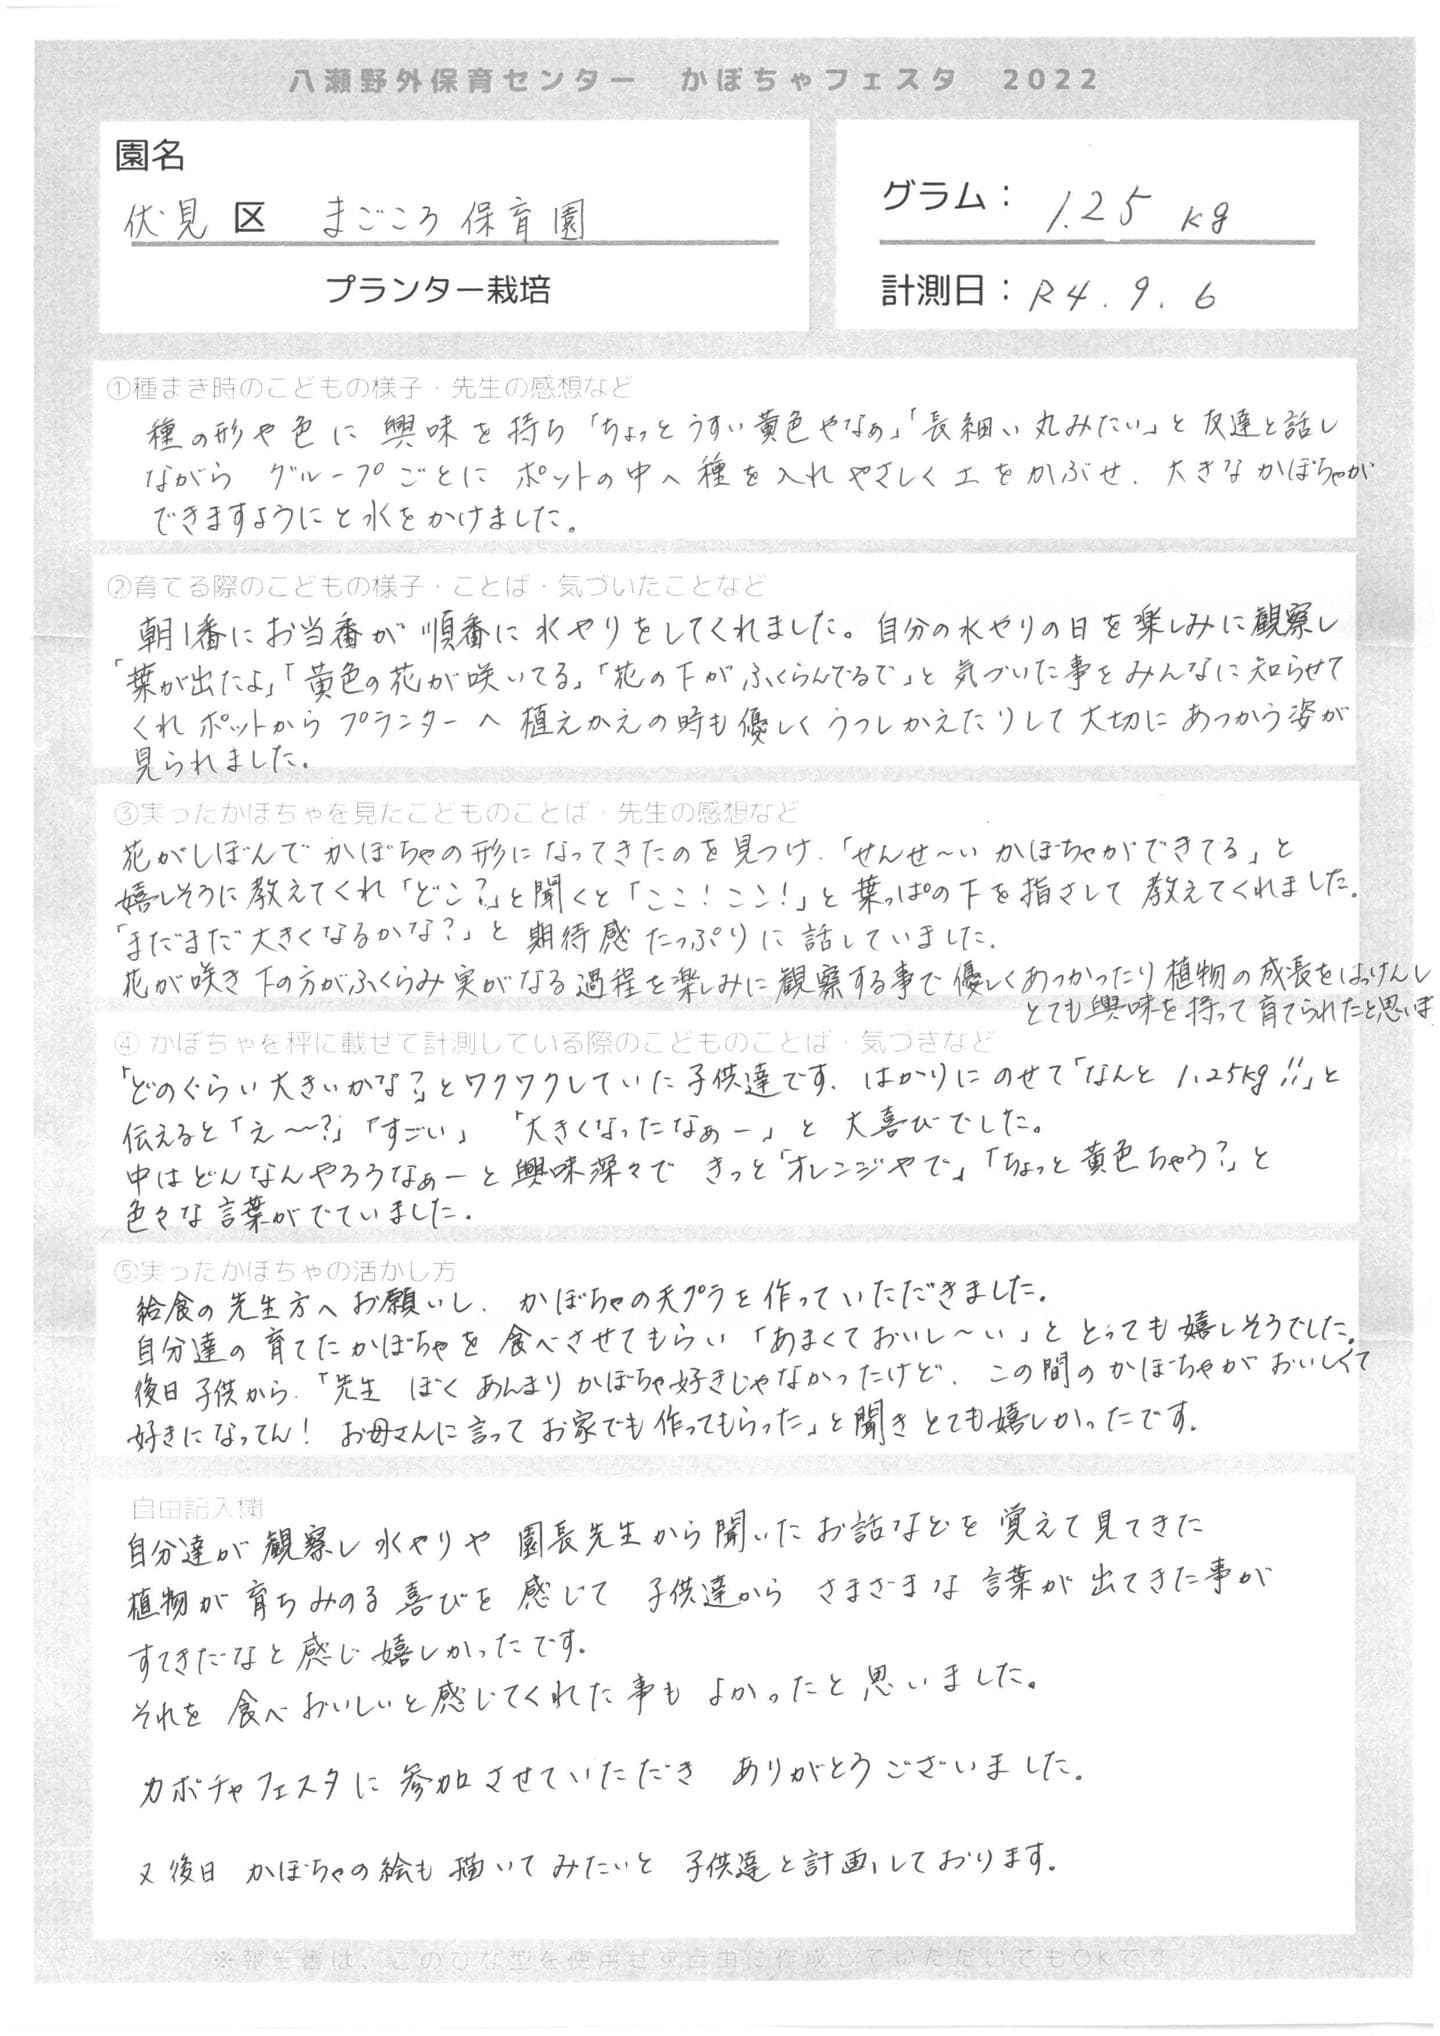 八瀬野外保育センター　かぼちゃフェスタ　2022
園名
伏見区　まごころ保育園
プランター栽培
グラム： 1.25 kg
計測日：R4.9.6
①種まき時のこどもの様子・先生の感想など
種の形や色に興味を持ち「ちょっとうすい黄色やなぁ」「長細い丸みたい」と友達と話し
ながら グループごとに ポットの中へ種を入れやさしく土をかぶせ、大きなかぼちゃが
できますようにと水をかけました。
②育てる際のこどもの様子・ことば・気づいたことなど
朝1番にお当番が順番に水やりをしてくれました。自分の水やりの日を楽しみに観察し
「葉が出たよ」「黄色の花が咲いてる」「花の下がふくらんでるで」と気づいた事をみんなに知らせて
くれポットからプランターへ植えかえの時も優しくうつしかえたりして大切にあつかう姿が
見られました。
③実ったかぼちゃを見たこどものことば・先生の感想など
花がしぼんでかぼちゃの形になってきたのを見つけ、「せんせ〜いかぼちゃができてる」と
嬉しそうに教えてくれ「どこ？」と聞くと「ここ！ここ！」と葉っぱの下を指さして教えてくれました。
「まだまだ大きくなるかな？」と期待感たっぷりに話していました。
花が咲き下の方がふくらみ実がなる過程を楽しみに観察する事で優しくあつかったり植物の成長をはっけんし
とても興味を持って育てられたと思いま
④ かぼちゃを秤に載せて計測している際のこどものことば・気づきなど
「どのぐらい大きいかな？」とワクワクしていた子供達です。はかりにのせて「なんと1.25kg!!」と
伝えると「え〜〜?」「すごい」「大きくなったなぁー」と大喜びでした。
中はどんなんやろうなぁーと興味深々で きっと「オレンジやで」「ちょっと黄色ちゃう？」と
色々な言葉がでていました。
⑤実ったかぼちゃの活かし方
給食の先生方へお願いし、かぼちゃの天プラを作っていただきました。
自分達の育てたかぼちゃを食べさせてもらい「あまくておいし〜い」ととっても嬉しそうでした。
後日子供から、「先生 ぼくあんまりかぼちゃ好きじゃなかったけど、この間のかぼちゃがおいしくて
好きになってん！お母さんに言ってお家でも作ってもらった」と聞きとても嬉しかったです。
自由記入欄
自分達が観察し水やりや園長先生から聞いたお話などを覚えて見てきた
植物が育ちみのる喜びを感じて子供達からさまざまな言葉が出てきた事が
すてきだなと感じ嬉しかったです。
それを食べおいしいと感じてくれた事もよかったと思いました。
カボチャフェスタに参加させていただきありがとうございました。
又後日かぼちゃの絵も描いてみたいと子供達と計画しております。
※報告書は、このひな型を使用せず自由に作成していただいてもOKです